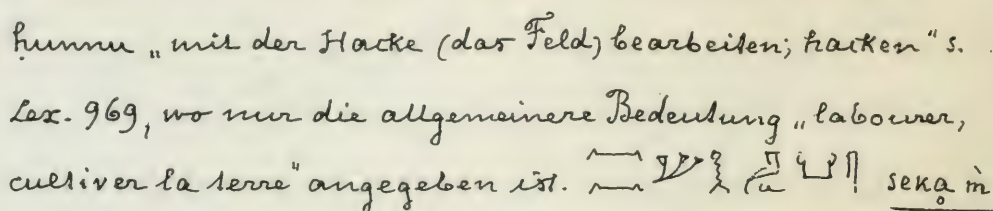 ḥunnu „mit der Hacke (das Feld) bearbeiten; hacken“ s.
Lex. 969, wo nur die allgemeinere Bedeutung „labourer,
cultiver la terre“ angegeben ist. seką ṁ